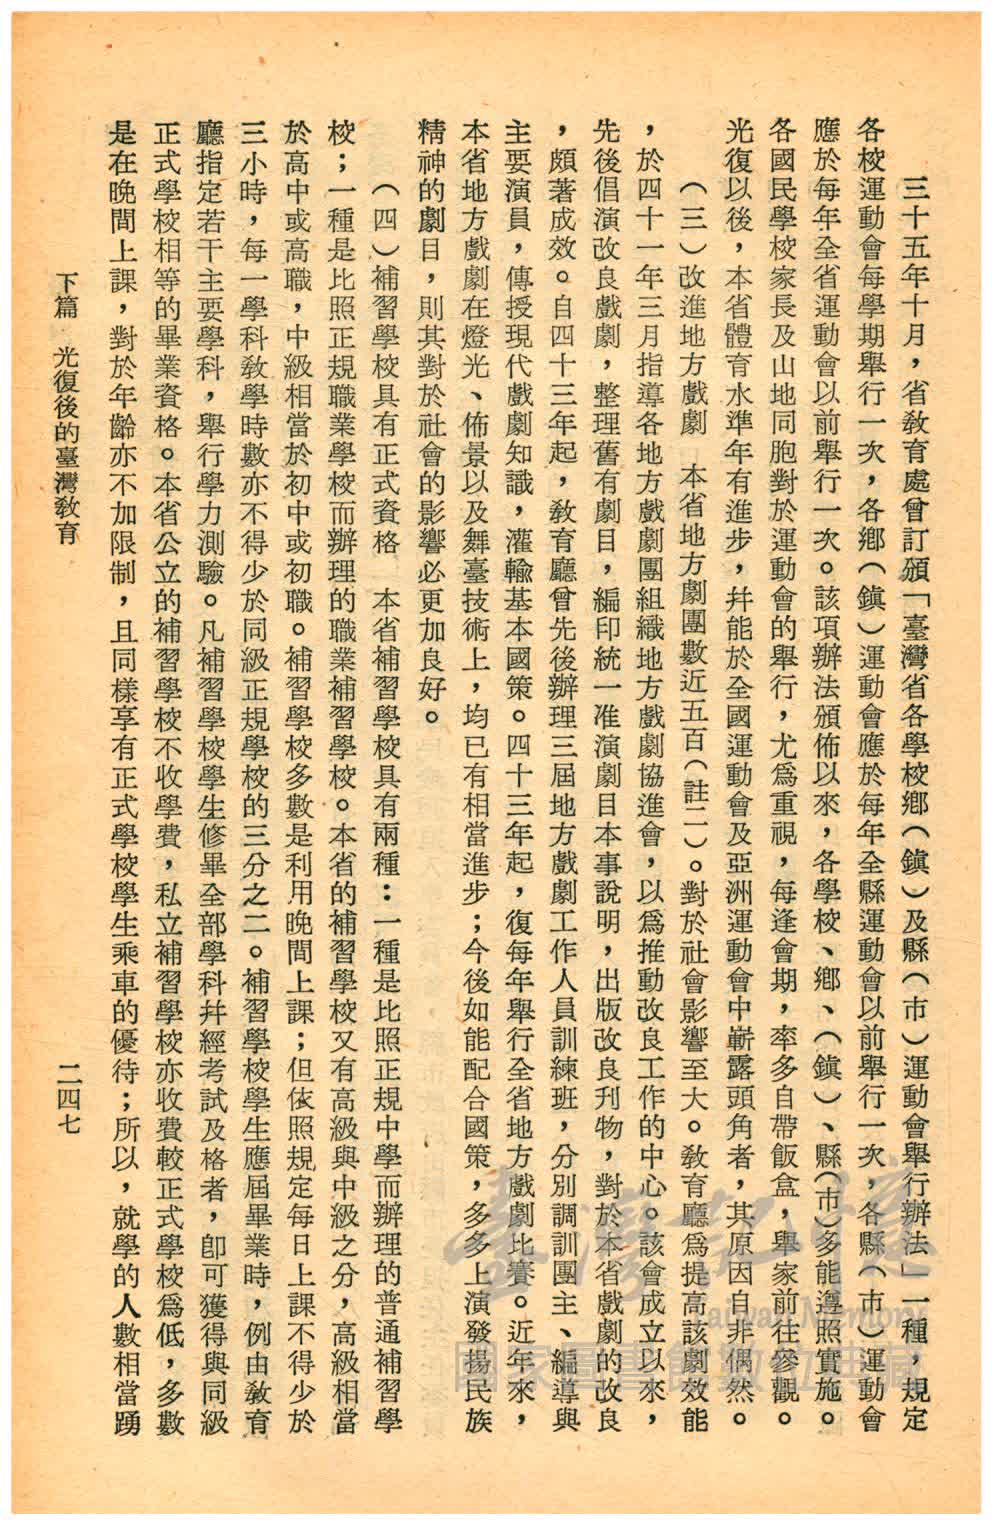 三十五年十月，省教育處曾訂頒「臺灣省各學校鄉（鎮）及縣（市）運動會舉行辦法」一種，規定
各校運動會每學期舉行一次，各鄉（鎮）運動會應於每年全縣運動會以前舉行一次，各縣（市）運動會
應於每年全省運動會以前舉行一次。該項辦法頒佈以來，各學校、鄉、（鎮）、縣（市）多能遵照實施。
各國民學校家長及山地同胞對於運動會的舉行，尤爲重視，每逢會期，率多自帶飯盒，舉家前往參觀。
光復以後，本省體育水準年有進步，幷能於全國運動會及亞洲運動會中嶄露頭角者，其原因自非偶然。
（三）改進地方戲劇　本省地方劇團數近五百（註二）。對於社會影響至大。教育廳爲提高該劇效能
，於四十一年三月指導各地方戲劇團組織地方戲劇協進會，以爲推動改良工作的中心。該會成立以來，
先後倡演改良戲劇，整理舊有劇目，編印統一准演劇目本事說明，出版改良刊物，對於本省戲劇的改良
，頗著成效。自四十三年起，教育廳曾先後辦理三屆地方戲劇工作人員訓練班，分別調訓團主、編導與
主要演員，傳授現代戲劇知識，灌輸基本國策。四十三年起，復每年舉行全省地方戲劇比賽。近年來，
本省地方戲劇在燈光、佈景以及舞臺技術上，均已有相當進步；今後如能配合國策，多多上演發揚民族
精神的劇目，則其對於社會的影響必更加良好。
（四）補習學校具有正式資格　本省補習學校具有兩種：一種是比照正規中學而辦理的普通補習學
校；一種是比照正規職業學校而辦理的職業補習學校。本省的補習學校又有高級與中級之分，高級相當
於高中或高職，中級相當於初中或初職。補習學校多數是利用晚間上課；但依照規定每日上課不得少於
三小時，每一學科教學時數亦不得少於同級正規學校的三分之二。補習學校學生應屆畢業時，例由教育
廳指定若干主要學科，舉行學力測驗。凡補習學校學生修畢全部學科幷經考試及格者，卽可獲得與同級
正式學校相等的畢業資格。本省公立的補習學校不收學費，私立補習學校亦收費較正式學校爲低，多數
是在晚間上課，對於年齡亦不加限制，且同樣享有正式學校學生乘車的優待；所以，就學的人數相當踴
下篇　光復後的臺灣教育　二四七
臺灣記憶
Taiwan Memory
國家圖書館數位典藏